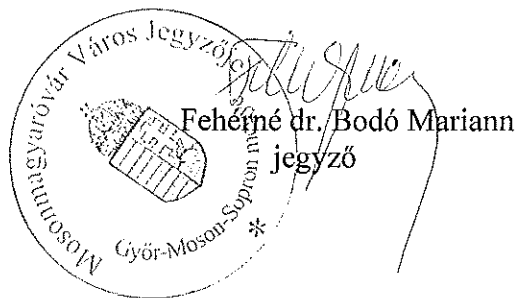 Mosonmagyaróvár Város Jegyzője
Győr-Moson-Sopron megye
*
Fehérné dr. Bodó Mariann
jegyző